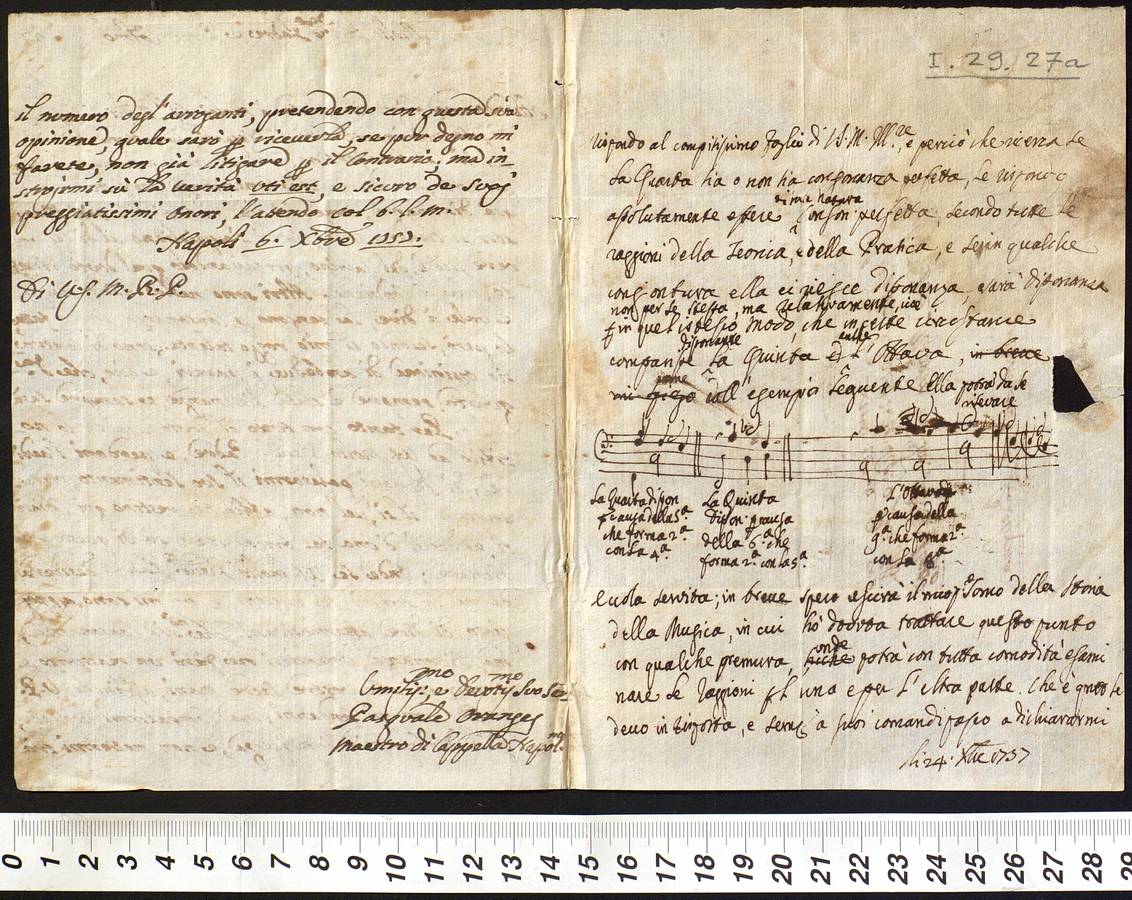 il numero degl' arroganti, pretendendo con questa sua
opinione, quale sarò p riceverla, se pur degno mi
farete, non già litigare p il contrario, ma in
struirmi sù la verità uti est, e sicuro de suoi
preggiatissimi onori, l'attendo col b. l. m.
Napoli 6. Xbre 1757.
Di V. S. M. R. P.
Umiliss.mo e Devotiss.mo Suo Ser.
Pasquale Oranges
Maestro di Cappella Napol.no
I. 29. 27a
rispondo al compitissimo foglio di V. S. M. M.re, e perciò che ricerca se
La Quarta sia o non sia consonanza perfetta, le rispondo
assolutamente essere di sua natura conson: perfetta, secondo tutte le
raggioni della Teorica, e della Pratica, e se in qualche
congiontura ella ci riesce disonanza, sarà disonanza
non per se stessa, ma relativamente, cioè
in quel istesso modo, che in certe circostanze
disonante anche
comparisce La Quinta, et L'Ottava, in breve
come
mi spiego coll' esempio seguente Ella potrà da se
rilevare
La Quarta dison
p causa della 5a
che forma 2a
con La 4a.
La Quinta
dison: p causa
della 6a che
forma 2a con la 5a.
L'Ottava
p causa della
9a. che forma 2a
con La 8a.
Eccola servita; in breve spero uscirà il mio p.o Tomo della Storia
della Musica, in cui hò dovuto trattare questo punto
con qualche premura, onde potrà con tutta comodità esami
nare le raggioni p l'una e per L'altra parte. Che è quanto Le
devo in risposta, e a suoi comandi passo a dichiararmi
li 24. Xbre 1757
0 1 2 3 4 5 6 7 8 9 10 11 12 13 14 15 16 17 18 19 20 21 22 23 24 25 26 27 28 29